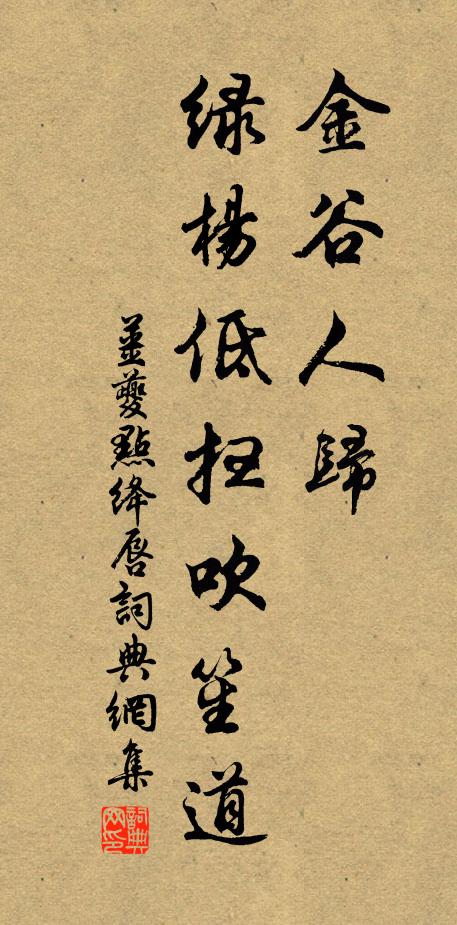 金谷人歸
绿楊低扫吹笙道
姜夔點绛唇詞典網集
詞典网印